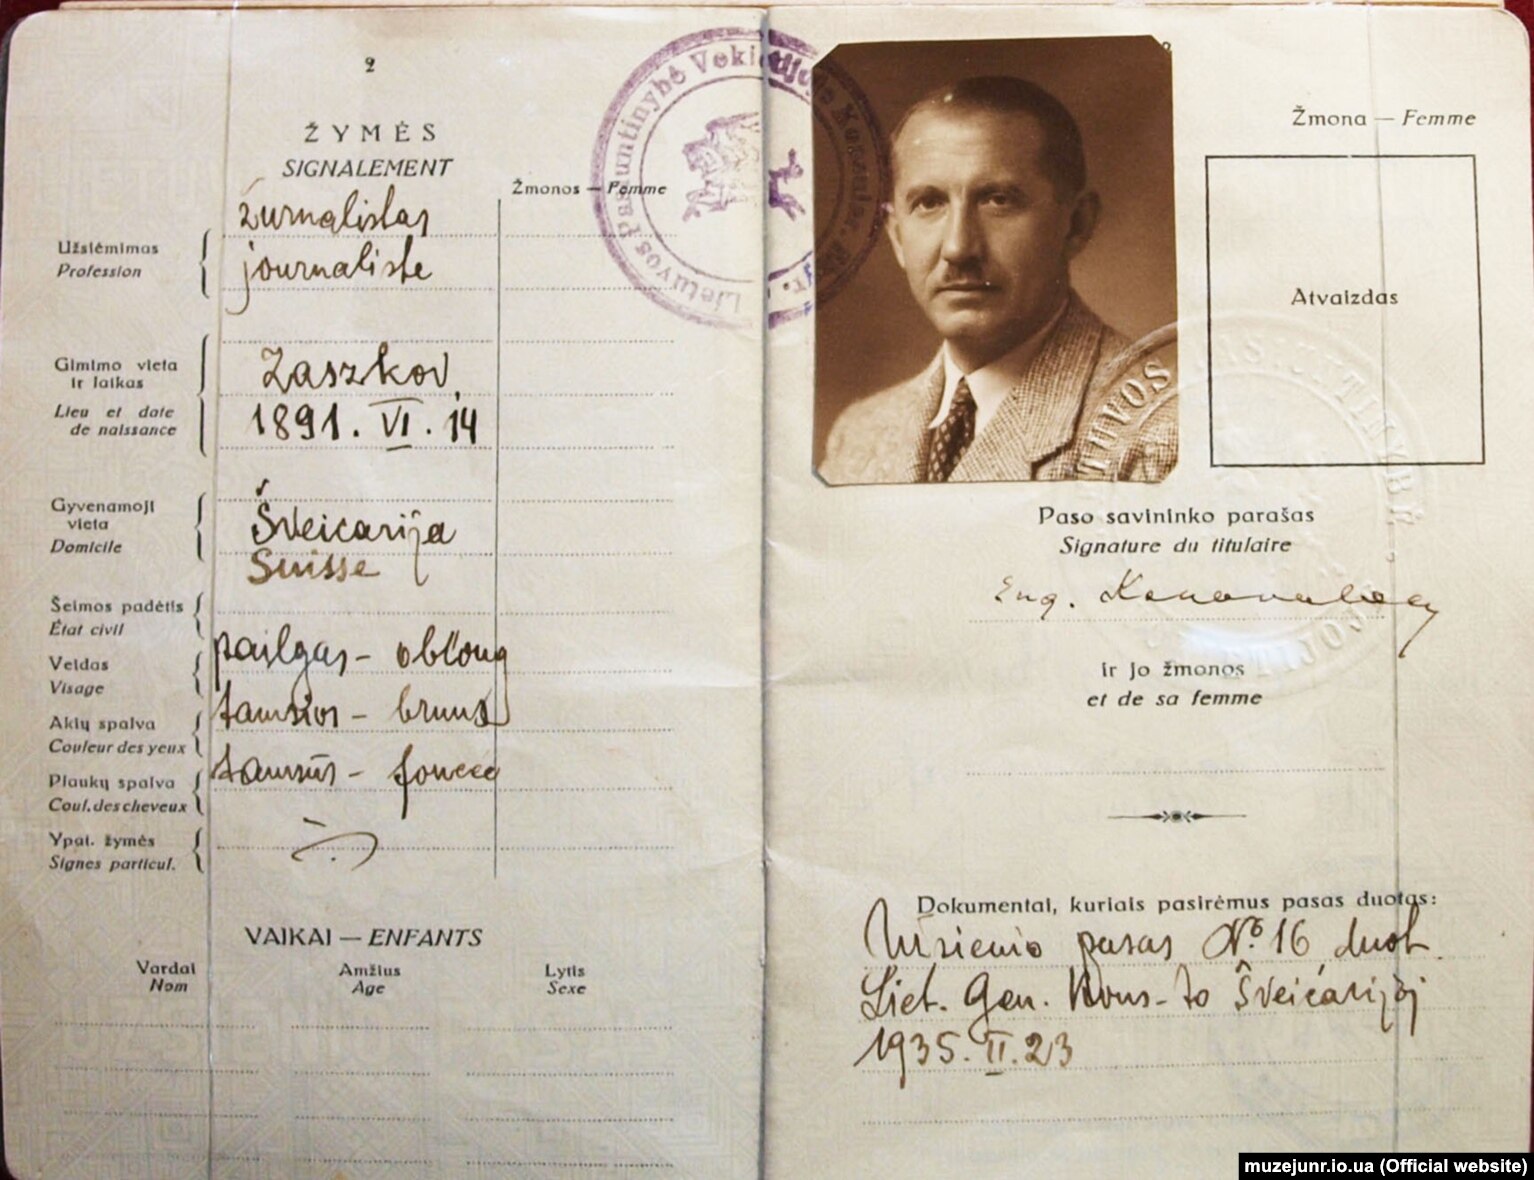 2
ŽYMĖS
SIGNALEMENT
Žmonos — Femme
Užsiėmimas
Profession
žurnalistas
journaliste
Gimimo vieta
ir laikas
Lieu et date
de naissance
Zaszkov,
1891. VI. 14
Gyvenamoji
vieta
Domicile
Šveicarija
Suisse
Šeimos padėtis
État civil
Veidas
Visage
pailgas – oblong
Akių spalva
Couleur des yeux
tamsios – bruns
Plaukų spalva
Coul. des cheveux
tamsūs – foncés
Ypat. žymės
Signes particul.
VAIKAI — ENFANTS
Vardai
Nom
Amžius
Age
Lytis
Sexe
Lietuvos Pasiuntinybė Vokietijoje
Žmona — Femme
Atvaizdas
Paso savininko parašas
Signature du titulaire
Eug. Konovalec
ir jo žmonos
et de sa femme
Dokumentai, kuriais pasirėmus pasas duotas:
Užsienio pasas No 16 duot.
Liet. Gen. Kons-to Šveicarijoj
1935. II. 23
muzejunr.io.ua (Official website)